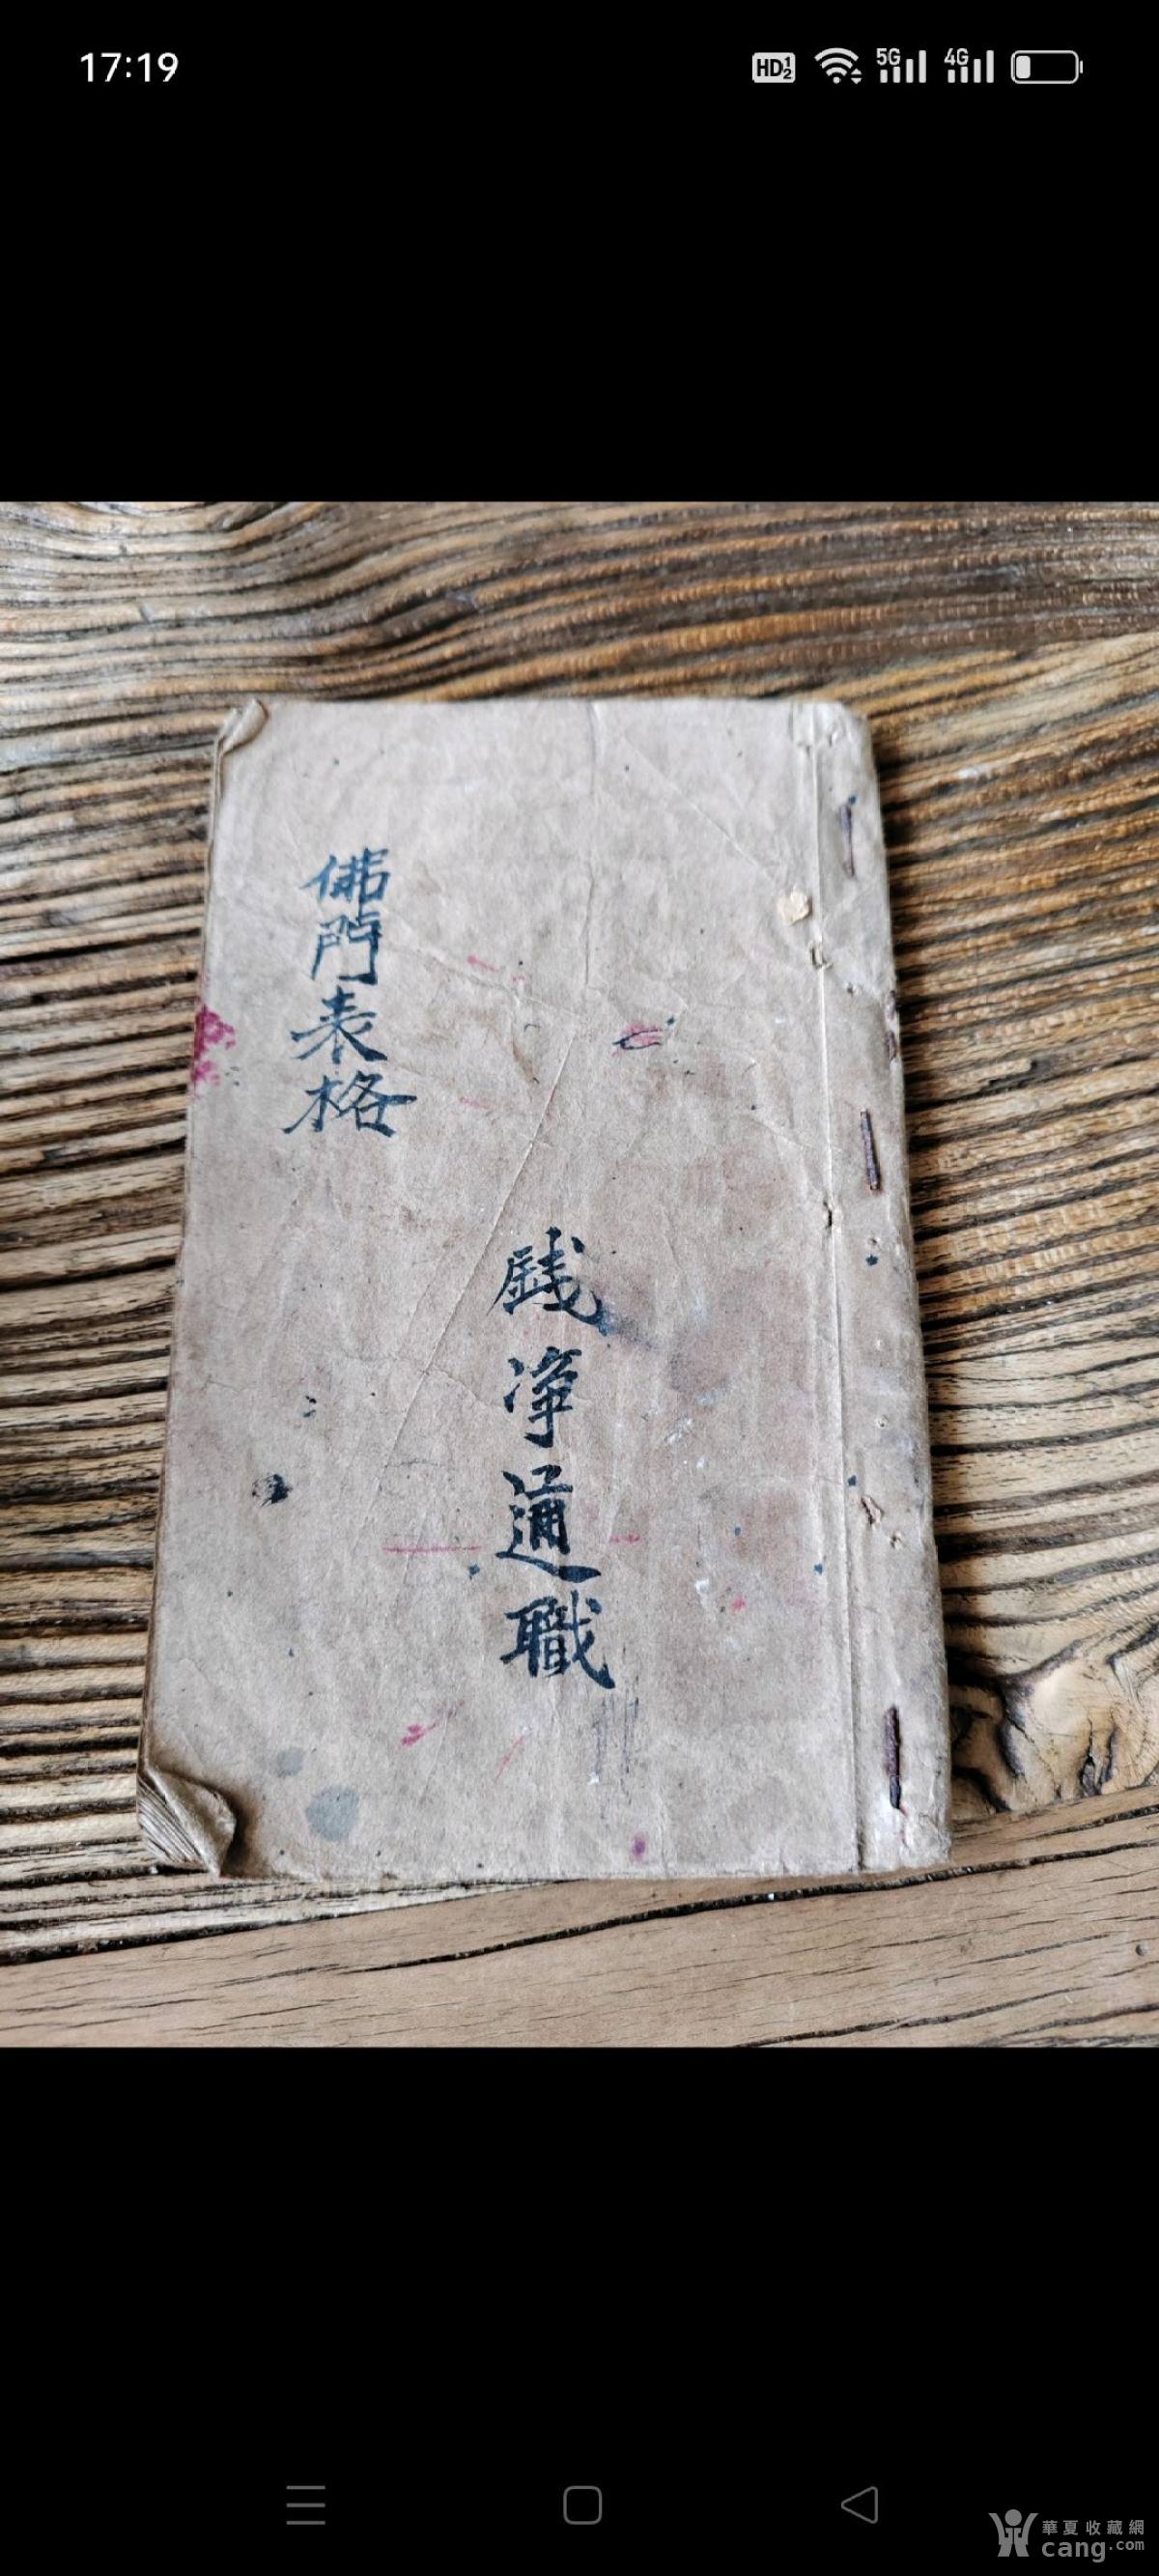 17:19
HD 1 2
5G
4G
佛門表格
戲淨通職
華夏收藏網
cang.com